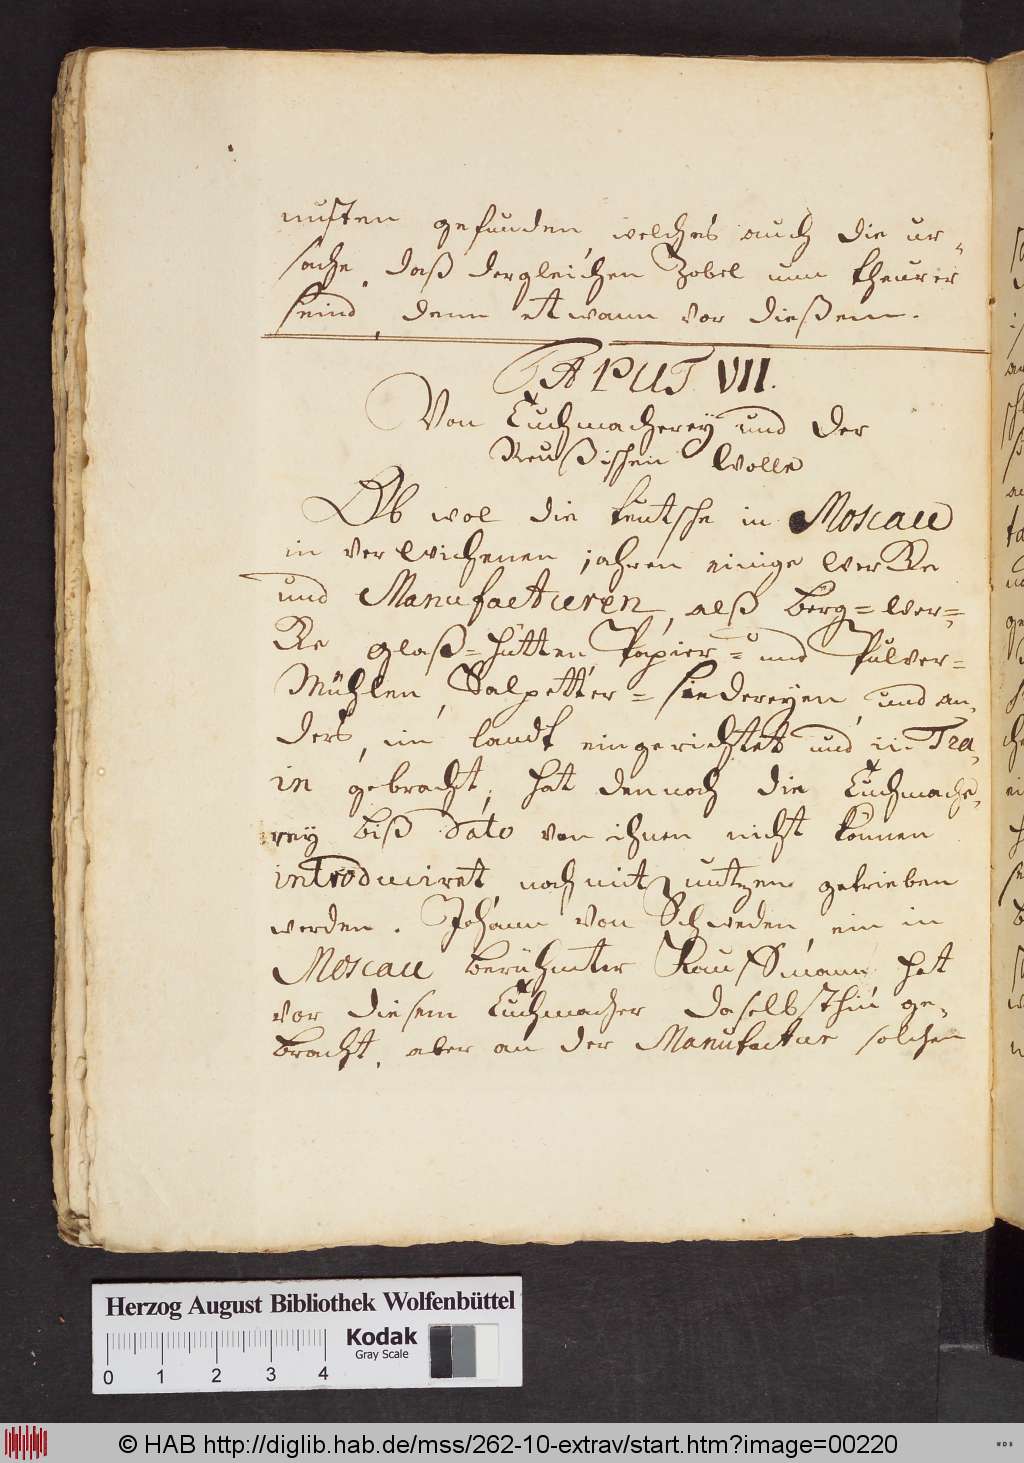 nusten gefunden, welches auch die ur-
sache, daß dergleichen Zobel nun theurer
seind, denn etwann vor dießem.
CAPUT VII.
Von Tuchmacherey und der
Reußischen Wolle
Ob wol die teutsche in Moscau
in verwichenen jahren einige WerKe
und Manufacturen, alß Berg=Wer=
Ke glaß=hütten, Papier= und Pulver=
Mühlen, Salpetter=siedereyen, und an-
ders, im landt eingerichtet und in Tra-
in gebracht, hat dennoch die Tuchmache-
rey biß dato von ihnen nicht können
introduciret noch mit nutzen getrieben
werden. Johann von Schweden, ein in
Moscau berühmter Kauffmann hat
vor diesem Tuchmacher daselbsthin ge-
bracht, aber an der Manufactur solchen
Herzog August Bibliothek Wolfenbüttel
Kodak
Gray Scale
0 1 2 3 4
© HAB http://diglib.hab.de/mss/262-10-extrav/start.htm?image=00220